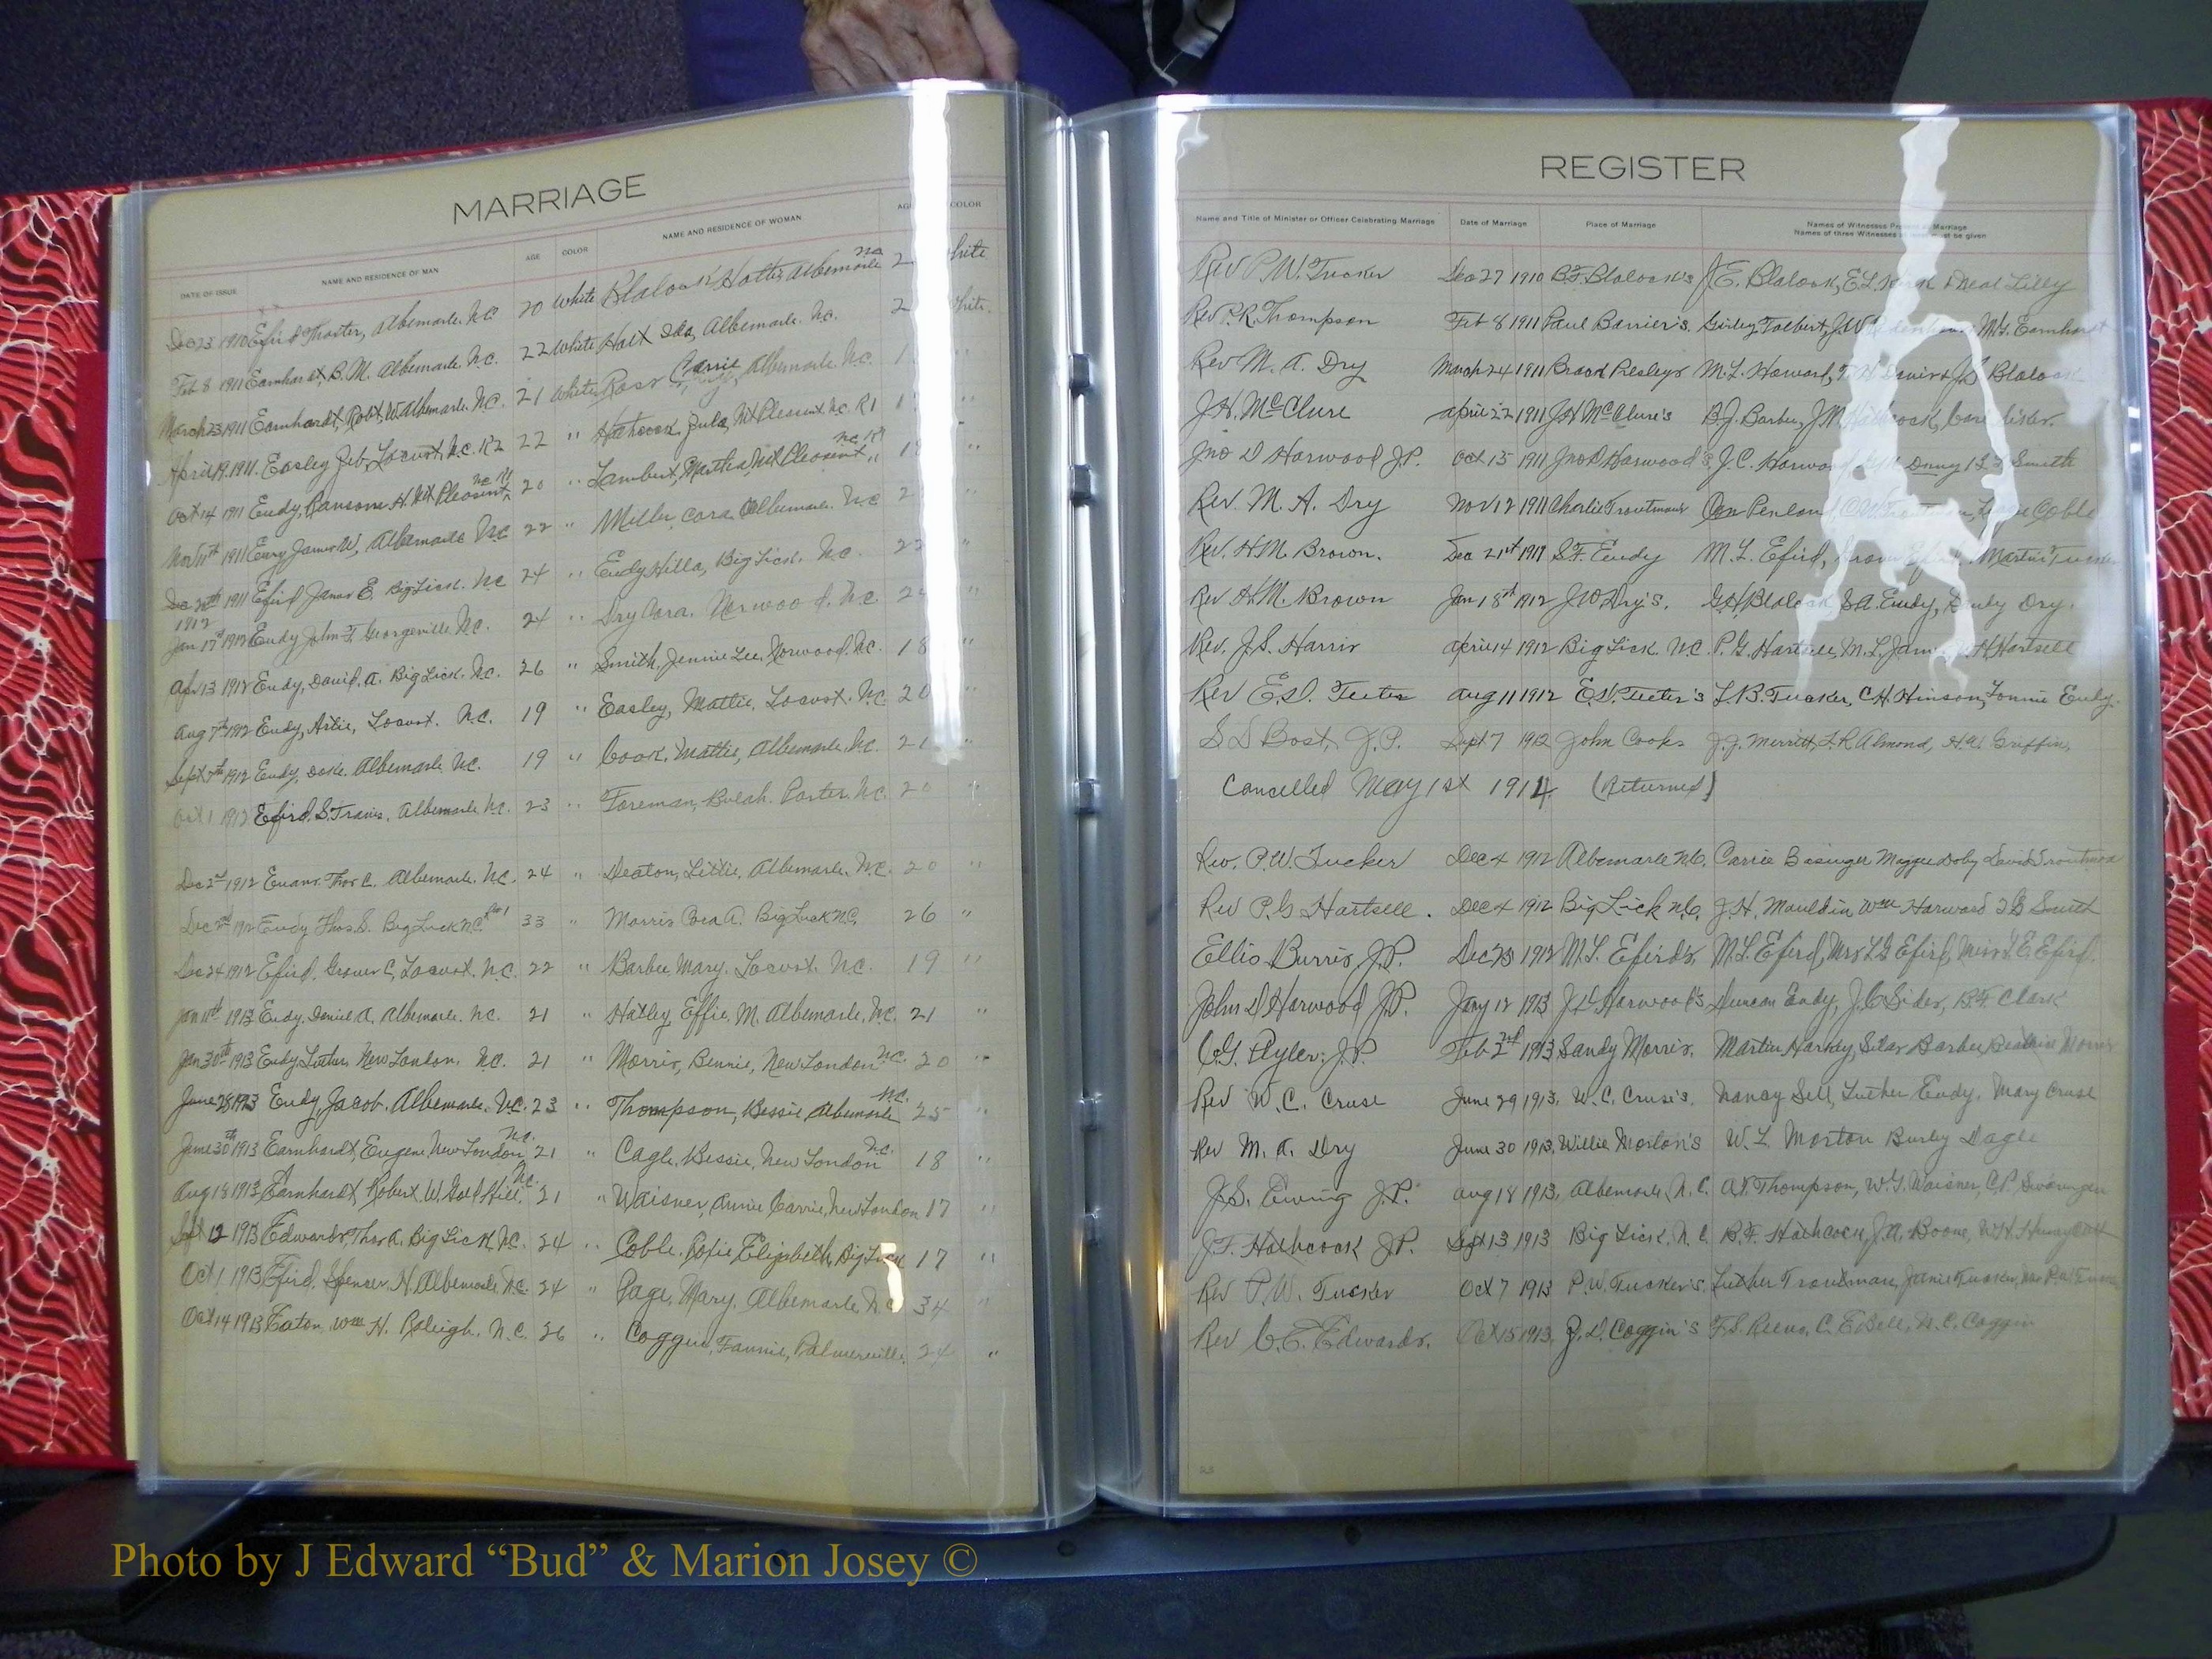 MARRIAGE
DATE OF ISSUE NAME AND RESIDENCE OF MAN AGE COLOR NAME AND RESIDENCE OF WOMAN AGE COLOR
Dec 23 1910 Efird Albemarle N.C. 20 White Blalock Hattie, Albemarle N.C. 2 hite
Feb 8 1911 Earnhardt, B. M. Albemarle N.C. 22 White Holt Ida, Albemarle. N.C. 2 hite.
March 23 1911 Earnhardt, Robt. W. Albemarle. N.C. 21 White Ross Carrie Albemarle N.C. 1 "
April 19. 1911. Easley Zeb, Locust, N.C. R2 22 " Hathcock, Zula, Mt Pleasant N.C. R1 1 "
Oct 14 1911 Eudy, Ransome H. Mt Pleasant N.C. 20 " Lambert, Martha, Mt Pleasant, N.C. R1 18 "
Nov 11th 1911 Eury James W, Albemarle N.C 22 " Miller Cora Albemarle. N.C 2 "
Dec 20th 1911 Efird James E. Big Lick. N.C 24 " Eudy Hilla, Big Lick. N.C. 22 "
1912
Jan 17th 1912 Eudy John F. Georgeville N.C. 24 " Dry Cora. Norwood. N.C. 2 "
Apr 13 1912 Eudy, David. A. Big Lick. N.C. 26 " Smith, Jennie Lee, Norwood. N.C. 18 "
Aug 7th 1912 Eudy, Artie, Locust. N.C. 19 " Easley, Mattie, Locust. N.C. 20 "
Sept 7th 1912 Eudy, Albemarle N.C. 19 " Cook. Mattie, Albemarle. N.C. 21 "
Oct 1 1912 Efird. S. Travis, Albemarle N.C. 23 " Foreman, Bulah. Porter. N.C. 20 "
Dec 2nd 1912 Evans Thos C. Albemarle. N.C. 24 " Deaton, Lillie, Albemarle. N.C. 20 "
Dec 2nd 1912 Eudy Thos. S. Big Lick N.C. 33 " Morris Cora A. Big Lick N.C. 26 "
Dec 24 1912 Efird, Grover C, Locust. N.C. 22 " Barbee Mary. Locust. N.C. 19 "
Jan 11th 1913 Eudy. Daniel A. Albemarle. N.C. 21 " Hatley Effie. M. Albemarle. N.C. 21 "
Jan 30th 1913 Eudy Luther New London. N.C. 21 " Morris, Bennie, New London N.C. 20 "
June 28 1913 Eudy, Jacob. Albemarle. N.C. 23 " Thompson, Bessie, Albemarle N.C. 25 "
June 30th 1913 Earnhardt, Eugene, New London, N.C. 21 " Cagle. Bessie, New London N.C. 18 "
Aug 18 1913 Earnhardt, Robert W. Gold Hill, N.C. 21 " Waisner, Annie Carrie, New London 17 "
Sept 12 1913 Edwards, Thos A. Big Lick N.C. 24 " Coble. Elizabeth, Big Lick 17 "
Oct 1 1913 Efird, Spenser, H. Albemarle N.C. 34 " Page, Mary. Albemarle N.C. 34 "
Oct 14 1913 Eaton Wm H. Raleigh. N.C. 26 " Coggin, Fannie, Palmerville. 24 "
REGISTER
Name and Title of Minister or Officer Celebrating Marriage Date of Marriage Place of Marriage Names of Witnesses Present at Marriage
Names of three Witnesses must be given
Rev P. W. Tucker Dec 27 1910 B.F. Blalock's J.E. Blalock, E.L. & Neal Lilly
Rev P. R. Thompson Feb 8 1911 Paul Barrier's. Girley Talbert, J.W. M.G. Earnhardt
Rev M. A. Dry March 24 1911 Presley's M.L. Howard, Blalock
J.H. McClure April 22 1911 J.H McClure's B.J. Barbee, J.M. Hathcock,
Jno D Harwood J.P. Oct 15 1911 Jno D Harwood's J.C. Harwood Smith
Rev. M. A. Dry Nov 12 1911 Charlie Troutman's Penland Coble
Rev. H.M. Brown. Dec 21st 1911 S.F. Eudy M.L. Efird, Martin
Rev H.M. Brown Jan 18th 1912 J.W. Dry's. Blalock S.A. Eudy, Dry.
Rev. J.S. Harris April 14 1912 Big Lick. N.C. P.G. Hartsell, M.L. Hartsell
Rev E.D. Teeter Aug 11 1912 E.D. Teeter's L.B. Tucker, C.H. Hinson, Lonnie Eudy.
S D Bost, J.P. Sept 7 1912 John Cooks J.J. Merritt, L.R. Almond, Griffin,
Cancelled May 1st 1914 (Returned)
Rev. P.W. Tucker Dec 4 1912 Albemarle N.C. Carrie Basinger Maggie Doby David Troutman
Rev P.G Hartsell. Dec 4 1912 Big Lick N.C. J.H. Mauldin Wm Harwood Smith
Ellis Burris, J.P. Dec 25 1912 M.L. Efird's, M.L. Efird, Mrs L.G. Efird, Miss L.E. Efird.
John D Harwood J.P. Jany 12 1913 J.D Harwood's Duncan Eudy, B.F. Clark
J.P. Feb 2nd 1913 Sandy Morris. Martin Silas Barbee Morris
Rev W. C. Cruse June 29 1913. W. C. Cruse's. Nancy Sell, Luther Eudy. Mary Cruse
Rev M. A. Dry June 30 1913. Willie Morton's W. L. Morton Burley Dagle
J.S. Ewing J.P. Aug 18 1913. Albemarle, N.C. Thompson, W.T. Waisner, C.P. Swaringen
J.F. Hathcock J.P. Sept 13 1913 Big Lick, N.C. B.F. Hathcock, J.A. Boone,
Rev P.W. Tucker Oct 7 1913 P.W. Tucker's. Luther Troutman, Janie Tucker,
Rev C.E. Edwards. Oct 15 1913. J.D. Coggin's F.S. Reeves, C. E. Bell, N.C. Coggin
Photo by J Edward “Bud” & Marion Josey ©